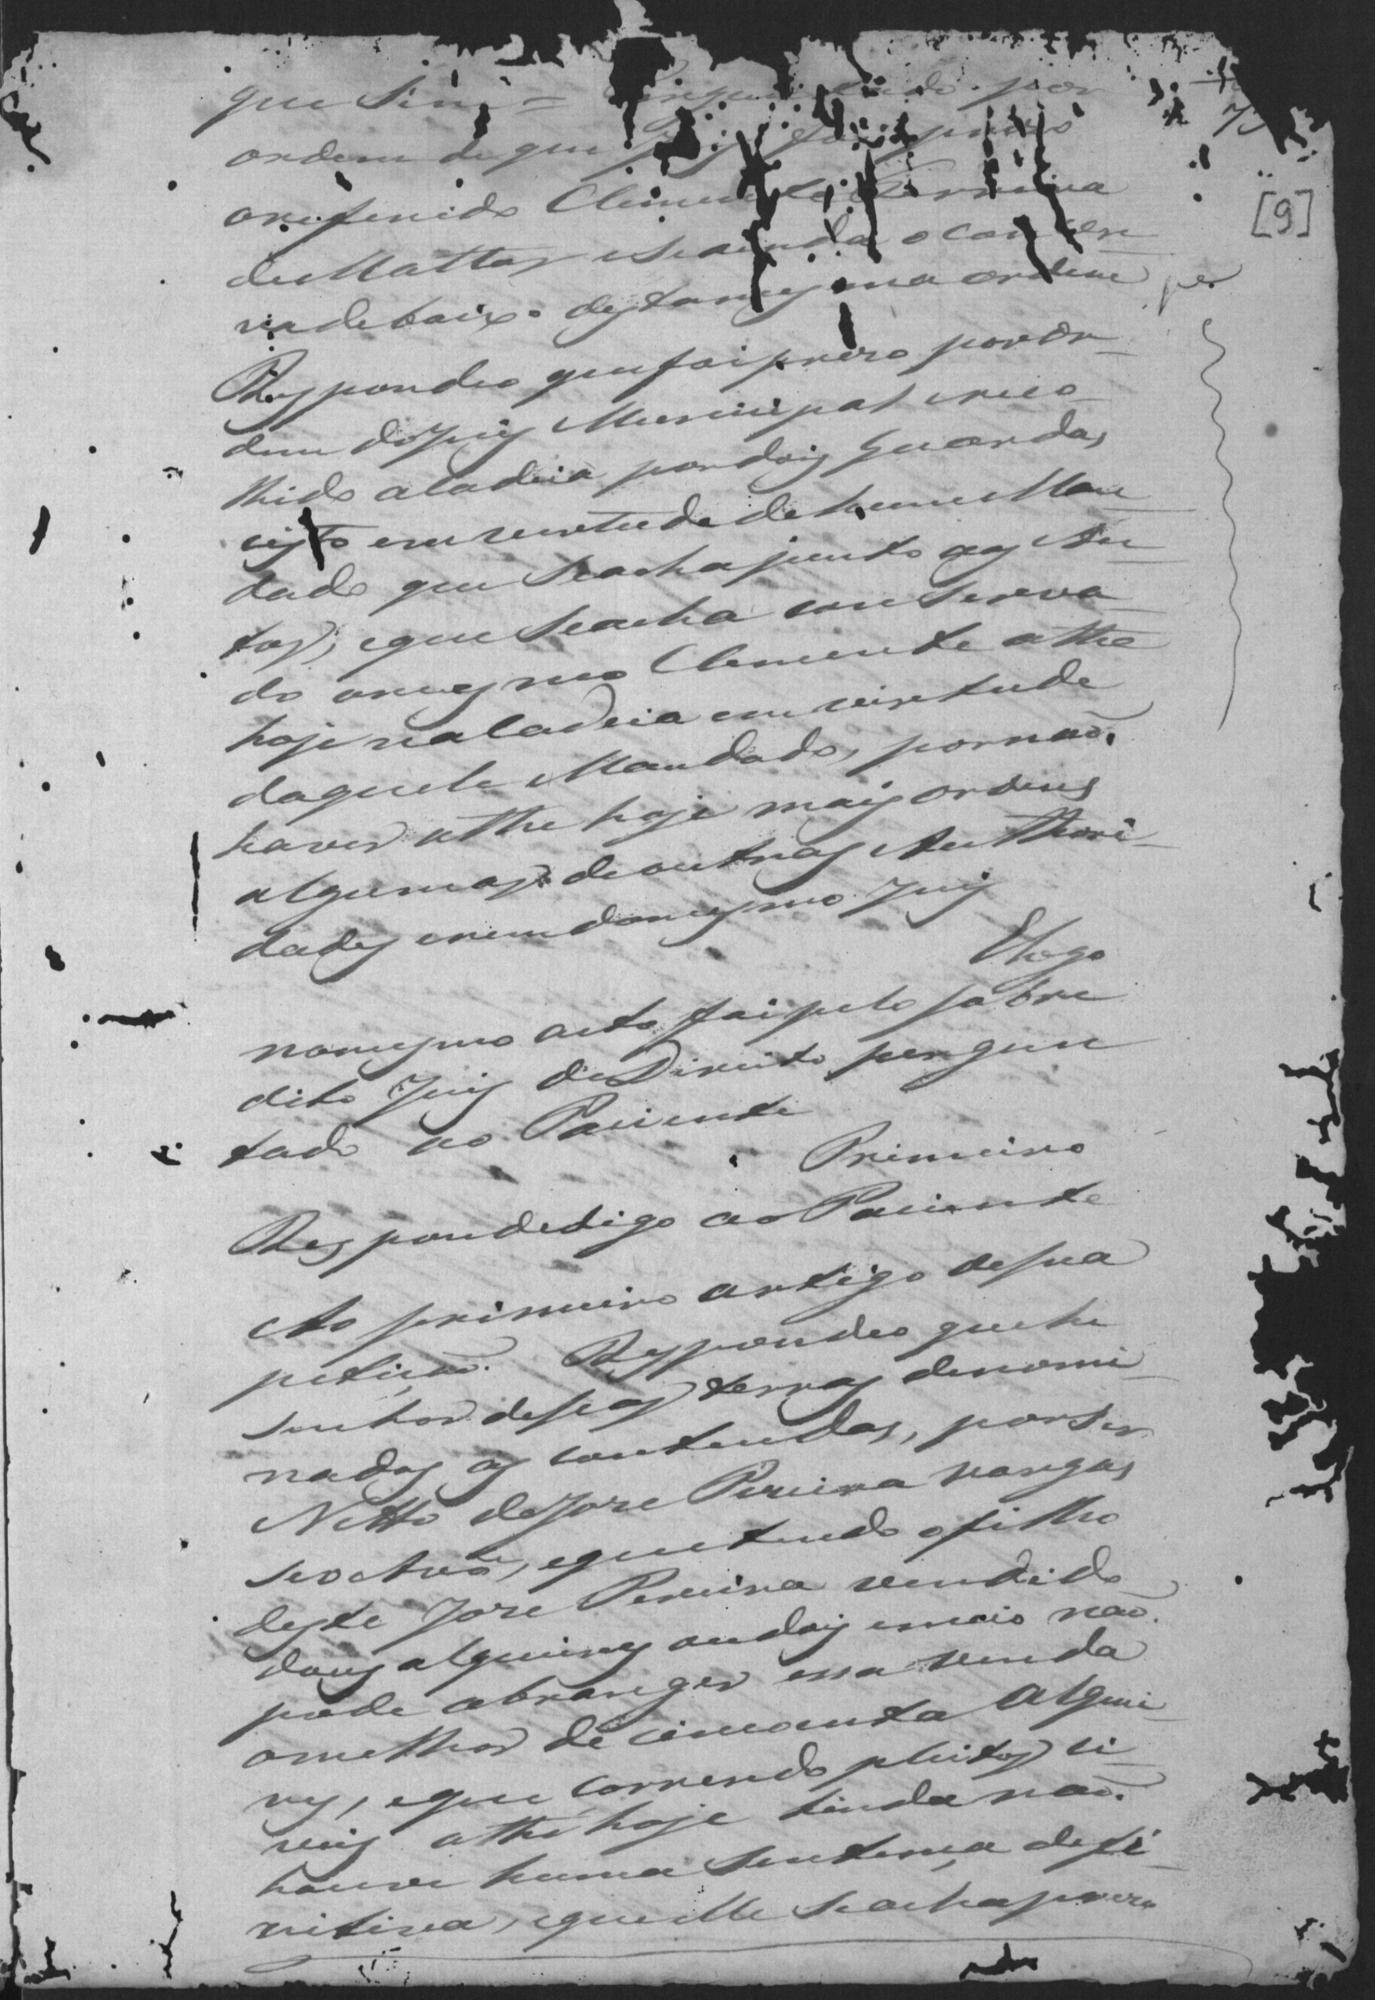 que Sim = Perguntado por
ordem de que Juiz foi prezo
oreferido Clemente Ferreira
de Mattos eseainda o conser
va debaixo destamesma ordem
Respondeo quefoi prezo por or-
dem do Juiz Municipal erico-
lhido aCadeia pordois Guardas
isto em vertude de hum Man
dado que seacha junto aos Au
tos, eque seacha conserva-
do omesmo Clemente athe
hoje naCadeia em virtude
daquele Mandado, pornaõ
haver athe hoje mais ordens
algumas de outras Authori-
dades enem domesmo Juiz
Elogo
nomesmo acto foi pelo sobre
dito Juiz de Direito pergun
tado ao Paciente
Primeiro
Responde digo ao Paciente
Ao primeiro artigo desua
petiçaõ. Respondeo que he
senhor dessas terras denomi-
nadas as contendas, por ser
Netto de Jose Pereira Vargas
seo Avô, eque tendo o filho
deste Jose Pereira vendido
dous alqueires ou dois emeio naõ
pode abranger essa venda
amelhor de cincoenta Alquei-
res, eque correndo pleitos ci-
veis athé hoje ainda naõ
houve huma Sentença defi-
nitiva, equelle seacha prezo
[9]